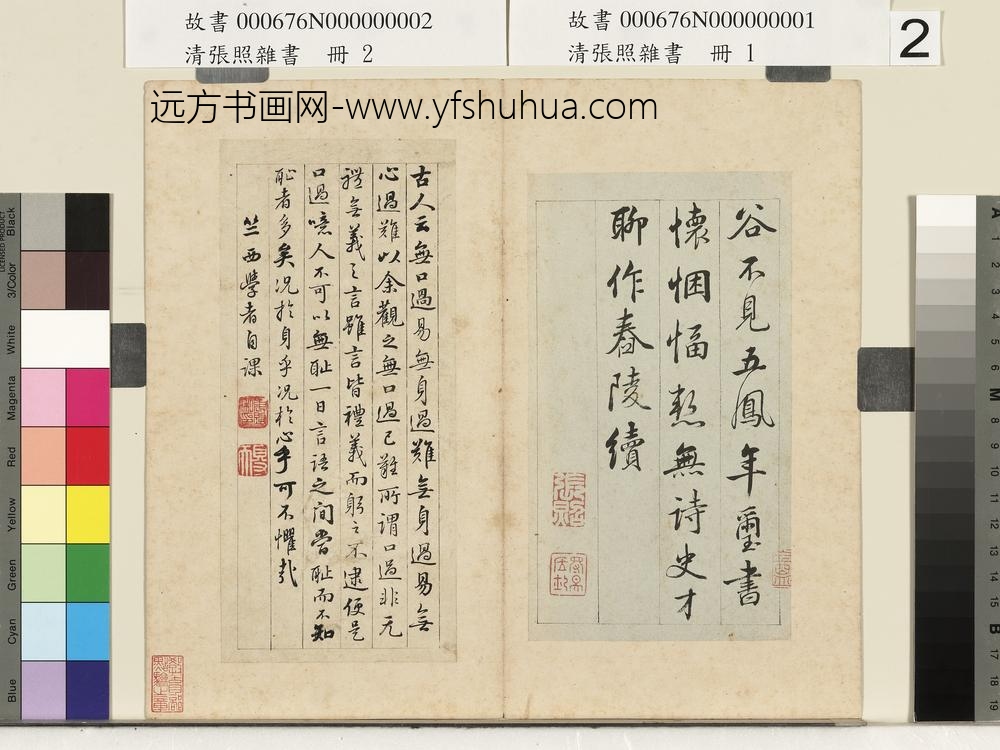 故書 000676N000000002
清張照雜書　冊 2
故書 000676N000000001
清張照雜書　冊 1
2
远方书画网-www.yfshuhua.com
谷不見五鳳年璽書
懷悃愊愁無詩史才
聊作舂陵續
古人云無口過易無身過難無身過易無
心過難以余觀之無口過已難所謂口過非无
禮無義之言雖言皆禮義而躬之不逮便是
口過噫人不可以無恥一日言語之間當恥而不知
恥者多矣况於身乎况於心乎可不懼哉
竺西學者自課
LICENSED PRODUCT
Black
3/Color
White
Magenta
Red
Yellow
Green
Cyan
Blue
A
1
2
3
4
5
6
M
8
9
10
11
12
13
14
15
B
17
18
19